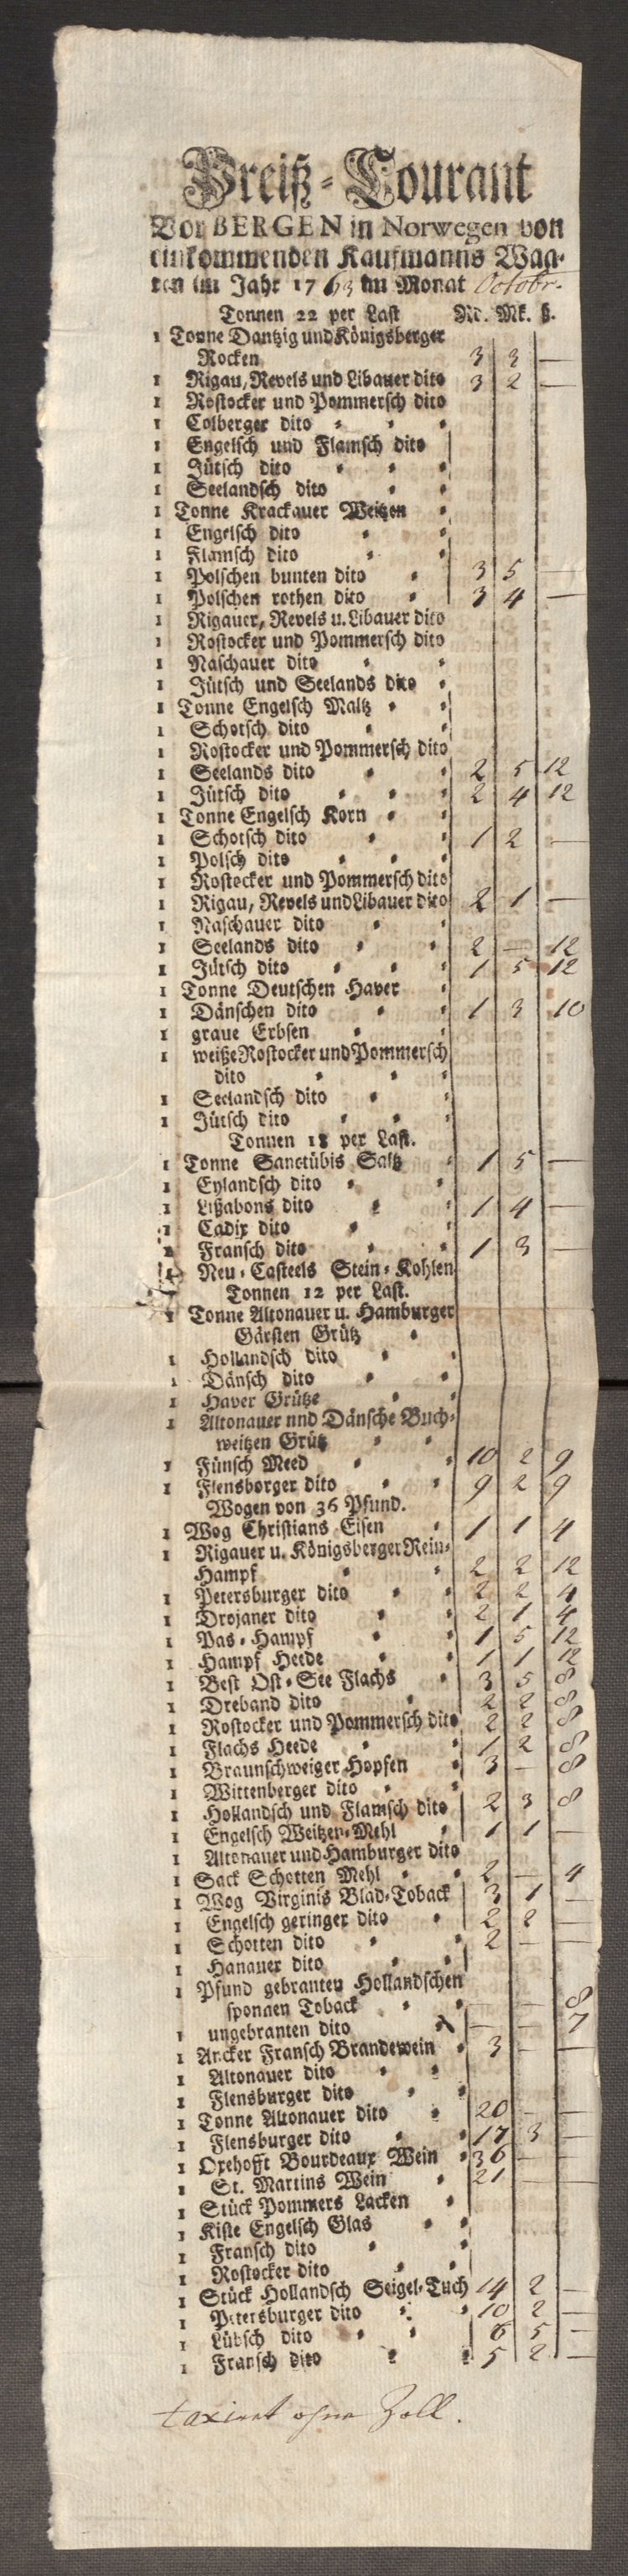 Preiß-Courant
Vor BERGEN in Norwegen von
einkommenden Kaufmanns Waa-
ren im Jahr 1763 im Monat Octobr.
Tonnen 22 per Last Rd. Mk. ß.
1 Tonne Dantzig und Königsberger
Rocken 3 3 —
1 Rigau, Revels und Libauer dito 3 2 —
1 Rostocker und Pommersch dito
1 Colberger dito
1 Engelsch und Flamsch dito
1 Jütsch dito
1 Seelandsch dito
1 Tonne Krackauer Weitzen
1 Engelsch dito
1 Flamsch dito
1 Polschen bunten dito 3 5 —
1 Polschen rothen dito 3 4 —
1 Rigauer, Revels u. Libauer dito
1 Rostocker und Pommersch dito
1 Naschauer dito
1 Jütsch und Seelands dito
1 Tonne Engelsch Maltz
1 Schotsch dito
1 Rostocker und Pommersch dito
1 Seelands dito 2 5 12
1 Jütsch dito 2 4 12
1 Tonne Engelsch Korn
1 Schotsch dito 1 2 —
1 Polsch dito
1 Rostocker und Pommersch dito
1 Rigau, Revels und Libauer dito 2 1 —
1 Naschauer dito
1 Seelands dito 2 — 12
1 Jütsch dito 1 5 12
1 Tonne Deutschen Haver
1 Dänschen dito 1 3 10
1 graue Erbsen
1 weiße Rostocker und Pommersch
dito
1 Seelandsch dito
1 Jütsch dito
Tonnen 18 per Last.
1 Tonne Sanctübis Saltz 1 5 —
1 Eylandsch dito
1 Lißabons dito 1 4 —
1 Cadix dito
1 Fransch dito 1 3 —
1 Neu-Casteels Stein-Kohlen
Tonnen 12 per Last.
1 Tonne Altonauer u. Hamburger
Gärsten Grütz
1 Hollandsch dito
1 Dänsch dito
1 Haver Grütze
1 Altonauer nnd Dänsche Buch-
weitzen Grütz
1 Fünsch Meed 10 2 9
1 Flensborger dito 9 2 9
Wogen von 36 Pfund.
1 Wog Christians Eisen 1 1 4
1 Rigauer u. Königsberger Rein-
Hampf 2 2 12
1 Petersburger dito 2 2 4
1 Drojaner dito 2 1 4
1 Pas-Hampf 1 5 12
1 Hampf Heede 1 1 12
1 Best Ost-See Flachs 3 5 8
1 Dreband dito 2 2 8
1 Rostocker und Pommersch dito 2 2 8
1 Flachs Heede 1 2 8
1 Braunschweiger Hopfen 3 — 8
1 Wittenberger dito
1 Hollandsch und Flamsch dito 2 3 8
1 Engelsch Weitzen-Mehl 1 1 —
1 Altonauer und Hamburger dito
1 Sack Schotten Mehl 2 — 4
1 Wog Virginis Blad-Toback 3 1 —
1 Engelsch geringer dito 2 2 —
1 Schotten dito 2 — —
1 Hanauer dito
1 Pfund gebranten Hollandschen
sponnen Toback — — 8
1 ungebranten dito — — 7
1 Ancker Fransch Brandewein 3 — —
1 Altonauer dito
1 Flensburger dito
1 Tonne Altonauer dito 20 — —
1 Flensburger dito 17 3 —
1 Oxehofft Bourdeaux Wein 36 — —
1 St. Martins Wein 21 — —
1 Stück Pommers Lacken
1 Kiste Engelsch Glas
1 Fransch dito
1 Rostocker dito
1 Stück Hollandsch Seigel-Tuch 14 2 —
1 Petersburger dito 10 2 —
1 Lübsch dito 6 5 —
1 Fransch dito 5 2 —
taxirt ohne Zoll.